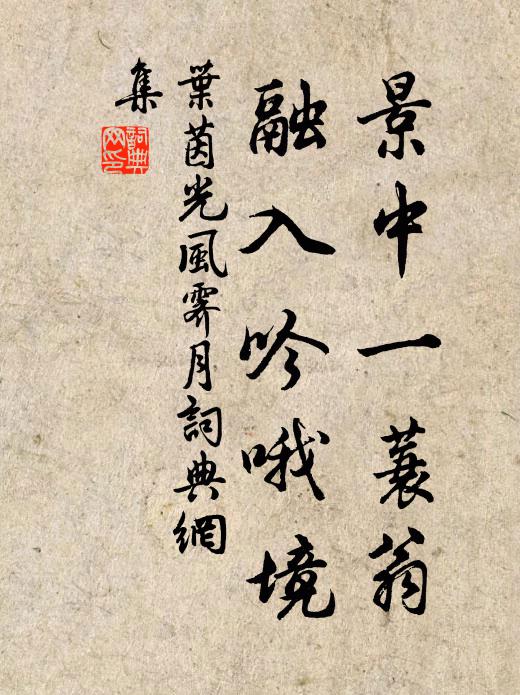 景中一蓑翁
融入吟哦境
葉茵光風霽月詞典網
集
詞典
网印